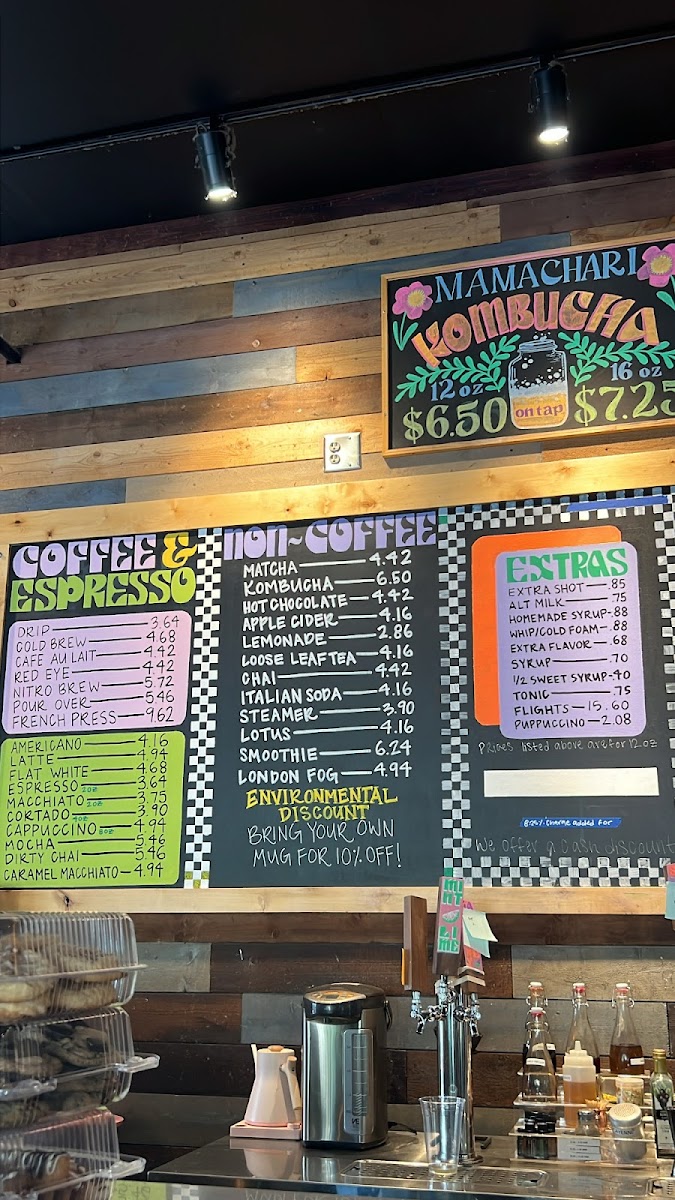 MAMACHARI
KOMBUCHA
12 oz
$6.50
on tap
16 oz
$7.25
COFFEE &
ESPRESSO
DRIP 3.64
COLD BREW 4.68
CAFE AU LAIT 4.42
RED EYE 4.42
NITRO BREW 5.72
POUR OVER 5.46
FRENCH PRESS 9.62
AMERICANO 4.16
LATTE 4.94
FLAT WHITE 4.68
ESPRESSO 2oz 3.64
MACCHIATO 2oz 3.75
CORTADO 4oz 3.90
CAPPUCCINO 8oz 4.94
MOCHA 5.46
DIRTY CHAI 5.46
CARAMEL MACCHIATO 4.94
NON-COFFEE
MATCHA 4.42
KOMBUCHA 6.50
HOT CHOCOLATE 4.42
APPLE CIDER 4.16
LEMONADE 2.86
LOOSE LEAF TEA 4.16
CHAI 4.42
ITALIAN SODA 4.16
STEAMER 3.90
LOTUS 4.16
SMOOTHIE 6.24
LONDON FOG 4.94
ENVIRONMENTAL
DISCOUNT
BRING YOUR OWN
MUG FOR 10% OFF!
EXTRAS
EXTRA SHOT .85
ALT MILK .75
HOMEMADE SYRUP .88
WHIP/COLD FOAM .88
EXTRA FLAVOR .68
SYRUP .70
1/2 SWEET SYRUP .40
TONIC .75
FLIGHTS 15.60
PUPPUCCINO 2.08
Prices listed above are for 12 oz
charge added for
We offer a cash discount
MINT
LIME